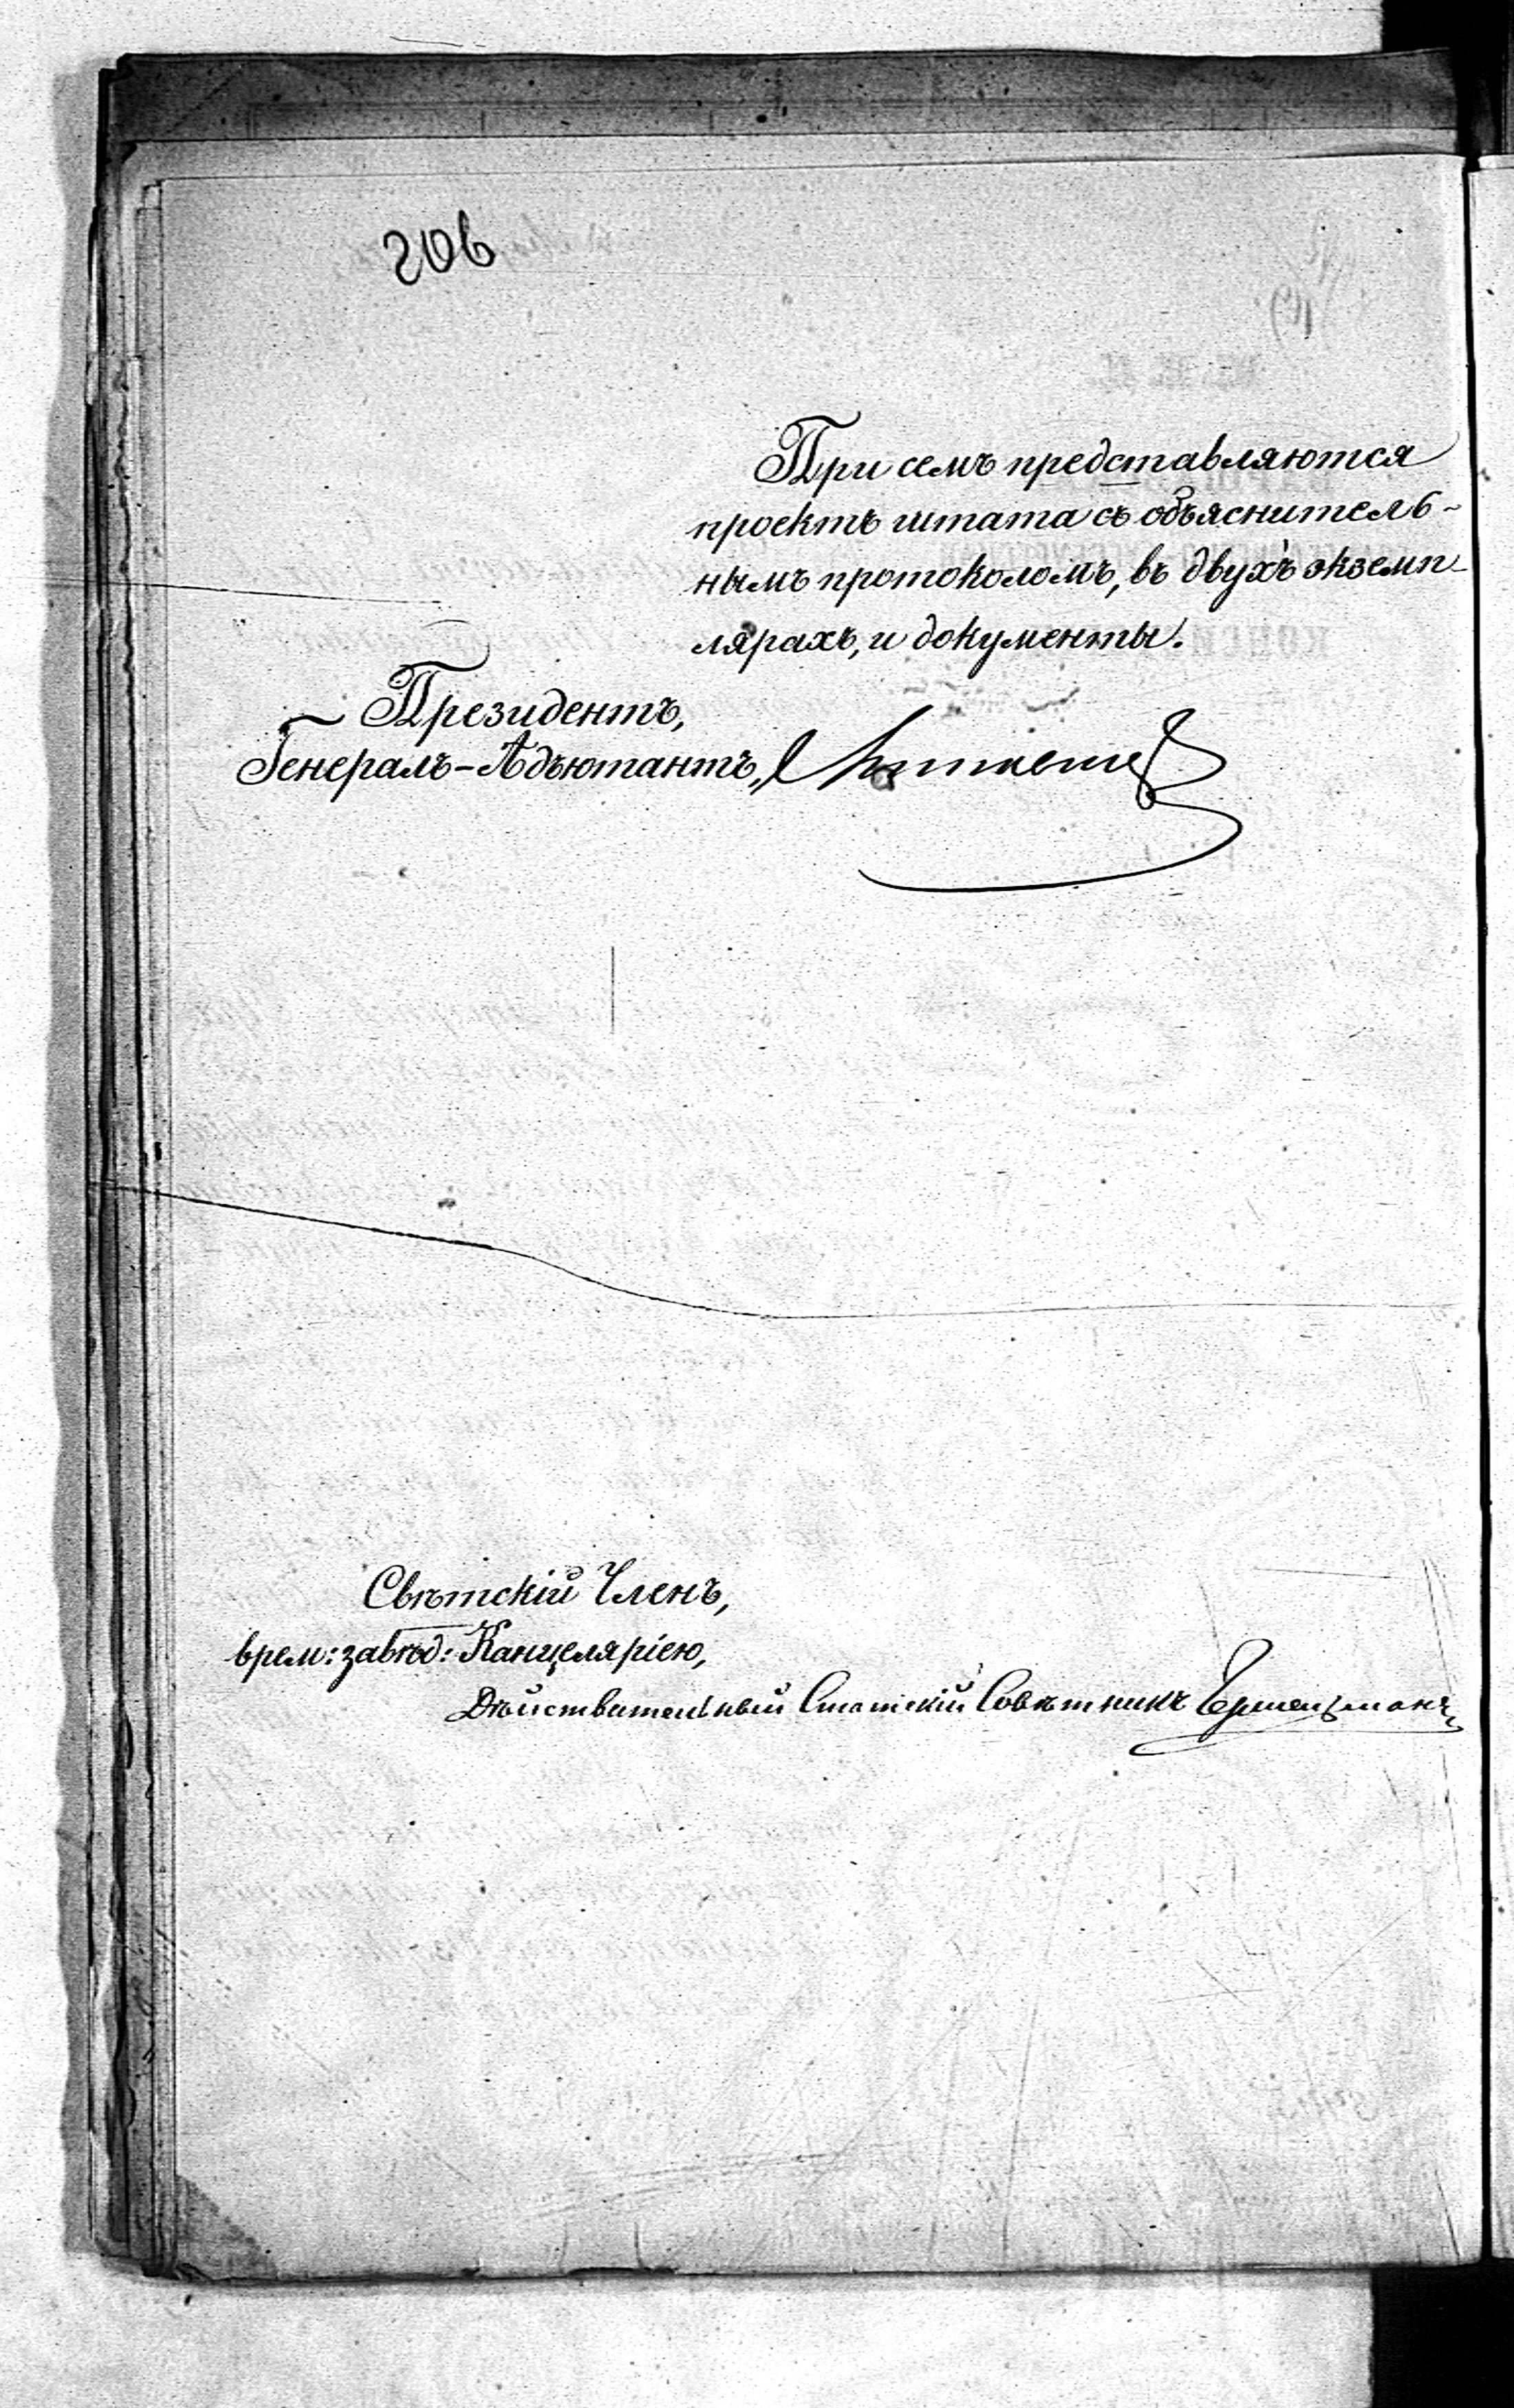 206
При семъ представляются
проектъ штата съ объяснитель-
нымъ протоколомъ, въ двухъ экземп-
лярахъ, и документы.
Президентъ,
Генералъ-Адъютантъ,
Свѣтскій Членъ,
врем: завѣд: Канцеляріею,
Дѣйствительный Статскій Совѣтникъ